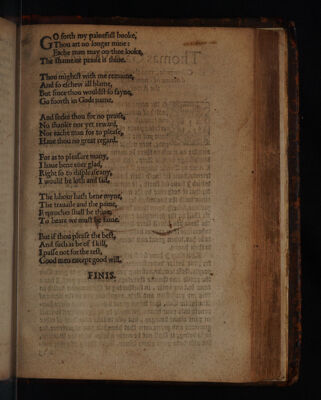 GO forth my painefull booke,
Thou art no longer mine:
Eache man may on thee looke,
The shame or praise is thine.
Thou mightst with me remaine,
And so eschew all blame,
But since thou wouldst so fayne,
Go foorth in Gods name.
And seeke thou for no praise,
No thanke nor yet reward,
Nor eache man for to please,
Haue thou no great regard.
For as to pleasure many,
I haue bene euer glad,
Right so to displease any,
I would be loth and sad.
The labour hath bene myne,
The trauaile and the paine,
Reproches shall be thine,
To beare we must be faine.
But if thou please the best,
And such as be of skill,
I passe not for the rest,
Good men except good will.
FINIS.